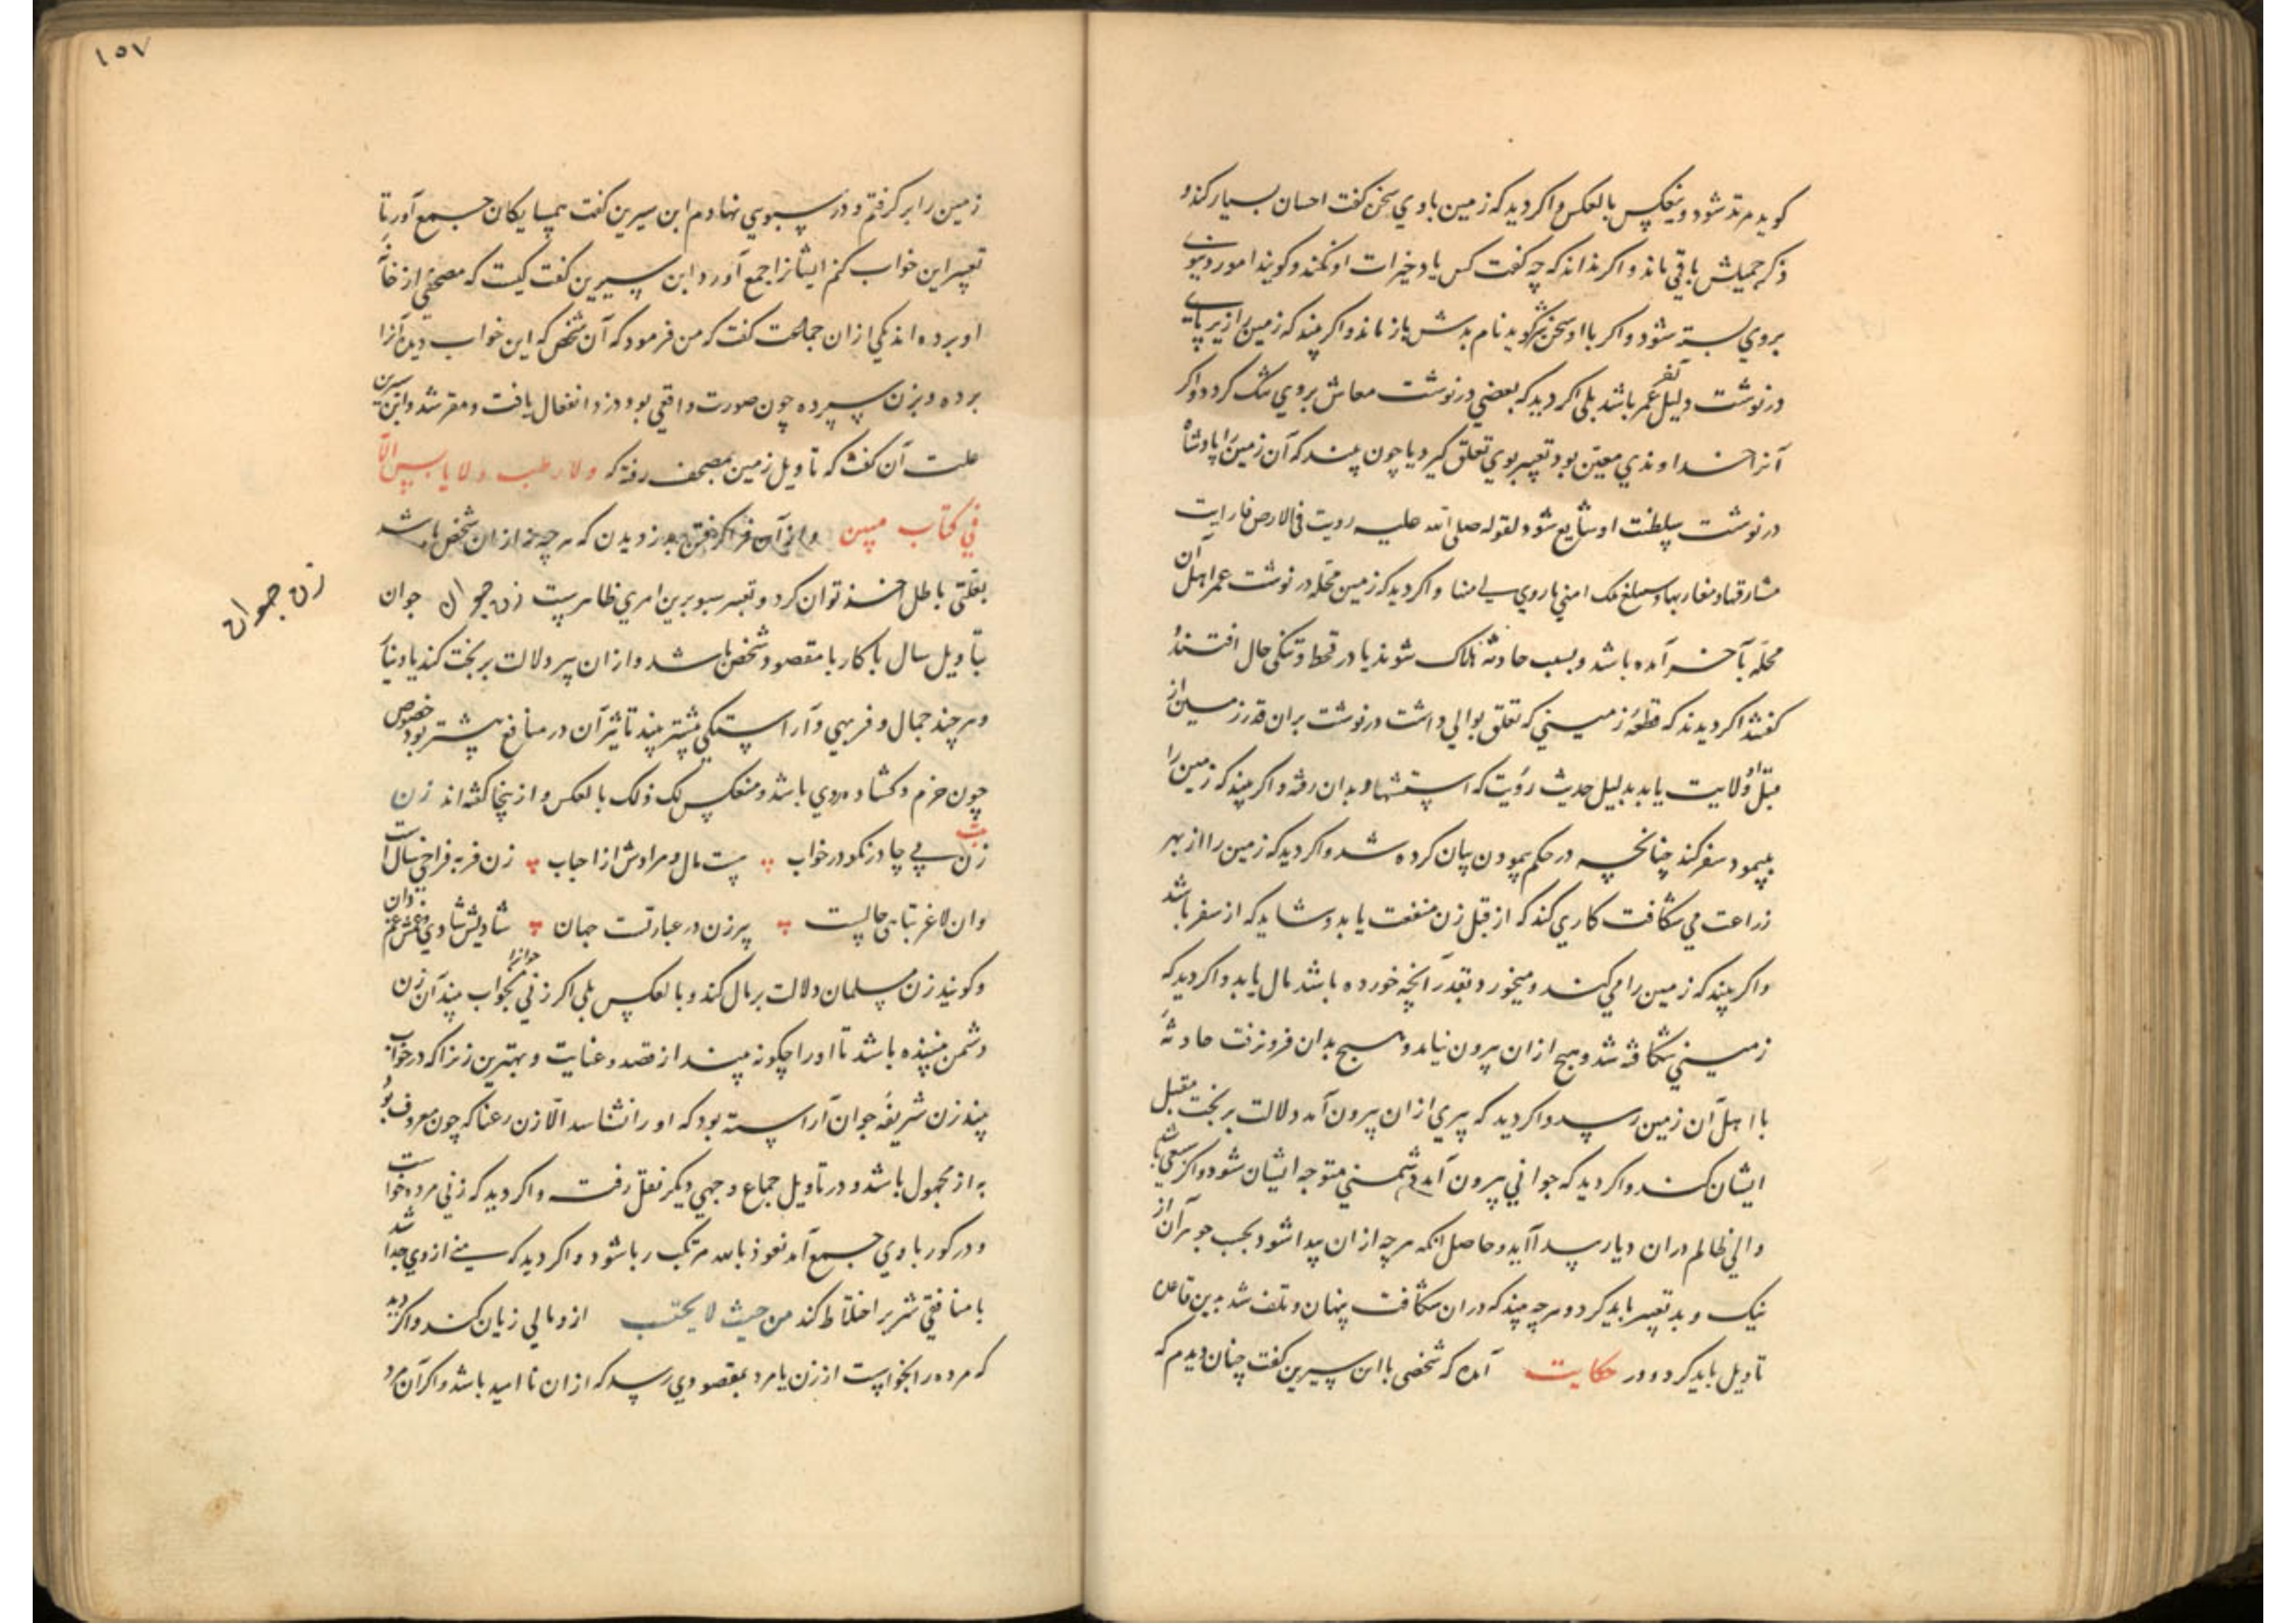 کوید مرتد شود و ینعکس بالعکس و اکر دید که زمین با وی سخن کفت احسان بسیار کند و
ذکر جمیلش باقی ماند و اکر نداند که چه کفت کس یاد خیرات او نکند و کویند امور دنیوی
بروی بسته شود و اکر با او سخن شر کوید نام بدش باز ماند و اکر بیند که زمین را از زیر پای
درنوشت دلیل سفر باشد بلی اکر دید که بعضی درنوشت معاش بروی تنک کردد و اکر
آنرا خداوندی معین بود تعبیر بوی تعلق کیرد یا چون بیند که آن زمین را پادشاه
درنوشت سلطنت او شایع شود لقوله صلی الله علیه زویت لی الارض فارایت
مشارقها و مغاربها و سیبلغ ملک امتی ما زوی لی منها و اکر دید که زمین محله درنوشت عمر اهل آن
محله بآخر آمده باشد و بسبب حادثه هلاک شوند یا در قحط و تنکی حال افتند و
کفتند اکر دیدند که قطعه زمینی که تعلق بوالی داشت درنوشت بران قدر زمین از
قبل او ولایت یابد بدلیل حدیث رؤیت که استشهاد بدان رفته و اکر بیند که زمین را
بپیمود سفر کند چنانچه در حکم پیمودن بیان کرده شد و اکر دید که زمین را از بهر
زراعت می شکافت کاری کند که از قبل زن منفعت یابد و شاید که از سفر باشد
و اکر بیند که زمین را می کند و میخورد بقدر آنچه خورده باشد مال یابد و اکر دید که
زمینی شکافته شد و هیچ ازان بیرون نیامد و هیچ بدان فرو نرفت حادثه
با اهل آن زمین رسد و اکر دید که پیری ازان بیرون آمد دلالت بر بخت مقبل
ایشان کند و اکر دید که جوانی بیرون آمد دشمنی متوجه ایشان شود و اکر سبعی باشد
والی ظالم دران دیار پیدا آید و حاصل آنکه هر چه ازان پیدا شود بحسب جوهر آن از
نیک و بد تعبیر باید کرد و هر چه بیند که دران شکافت پنهان و تلف شد بدین قاعده
تاویل باید کرد و در حکایت آمده که شخصی با ابن سیرین کفت چنان دیدم که
۱۵۷
زمین را بر کرفتم و در سبویی نهادم ابن سیرین کفت همسایکان جمع آور تا
تعبیر این خواب کنم ایشانرا جمع آورد ابن سیرین کفت کیست که مصحفی از خانه
او برده اند یکی ازان جماعت کفت که من فرمود که آن شخص که این خواب دیده آنرا
برده و بزن سپرده چون صورت واقعی بود دزد انفعال یافت و مقر شد و ابن سیرین
علت آن کفت که تاویل زمین بمصحف رفته که ولا رطب ولا یابس الا
فی کتاب مبین و از آن فرا کرفتن بدزدیدن که هر چه نه ازان شخص باشد
بعلتی باطل اخذ توان کرد و تعبیر سبو برین امری ظاهرست زن جوان جوان
بتاویل سال یا کار یا مقصود شخص باشد و ازان پیر دلالت بر بخت کند یا دنیا
و هر چند جمال و فربهی و آراستکی بیشتر بیند تاثیر آن در منافع بیشتر بود خصوص
چون خرم و کشاده روی باشد و منعکس لک ذلک بالعکس و ازینجا کفته اند زن
بیت
زن بی چادر نکو در خواب هست مال و مرادش از احباب زن فربه فراخی سال است
وان لاغر تباهی حالست پیر زن در عبارتست جهان شادیش شادی و غمش غم دان
زن جوان
و کویند زن مسلمان دلالت بر مال کند و بالعکس بلی اکر زنی جوانرا بخواب بیند آن زن
دشمن بیننده باشد تا او را چکونه بیند از قصد و عنایت و بهترین زنرا که در خواب
بیند زن شریفه جوان آراسته بود که او را نشناسد الا زن رعنا که چون معروف بود
به از مجهول باشد و در تاویل جماع وجهی دیکر نقل رفت و اکر دید که زنی مرده خواست
و در کور با وی جمع آمد نعوذ بالله مرتکب ربا شود و اکر دید که منی از وی جدا شد
با منافقی شریر اختلاط کند من حیث لا یحتسب ازو مالی زیان کند و اکر دید
که مرده را بخواست از زن یا مرد بمقصودی رسد که ازان ناامید باشد و اکر آن مرد